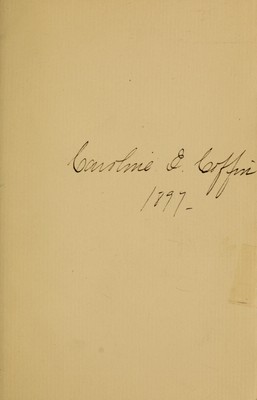 Caroline E. Coffin
1897-